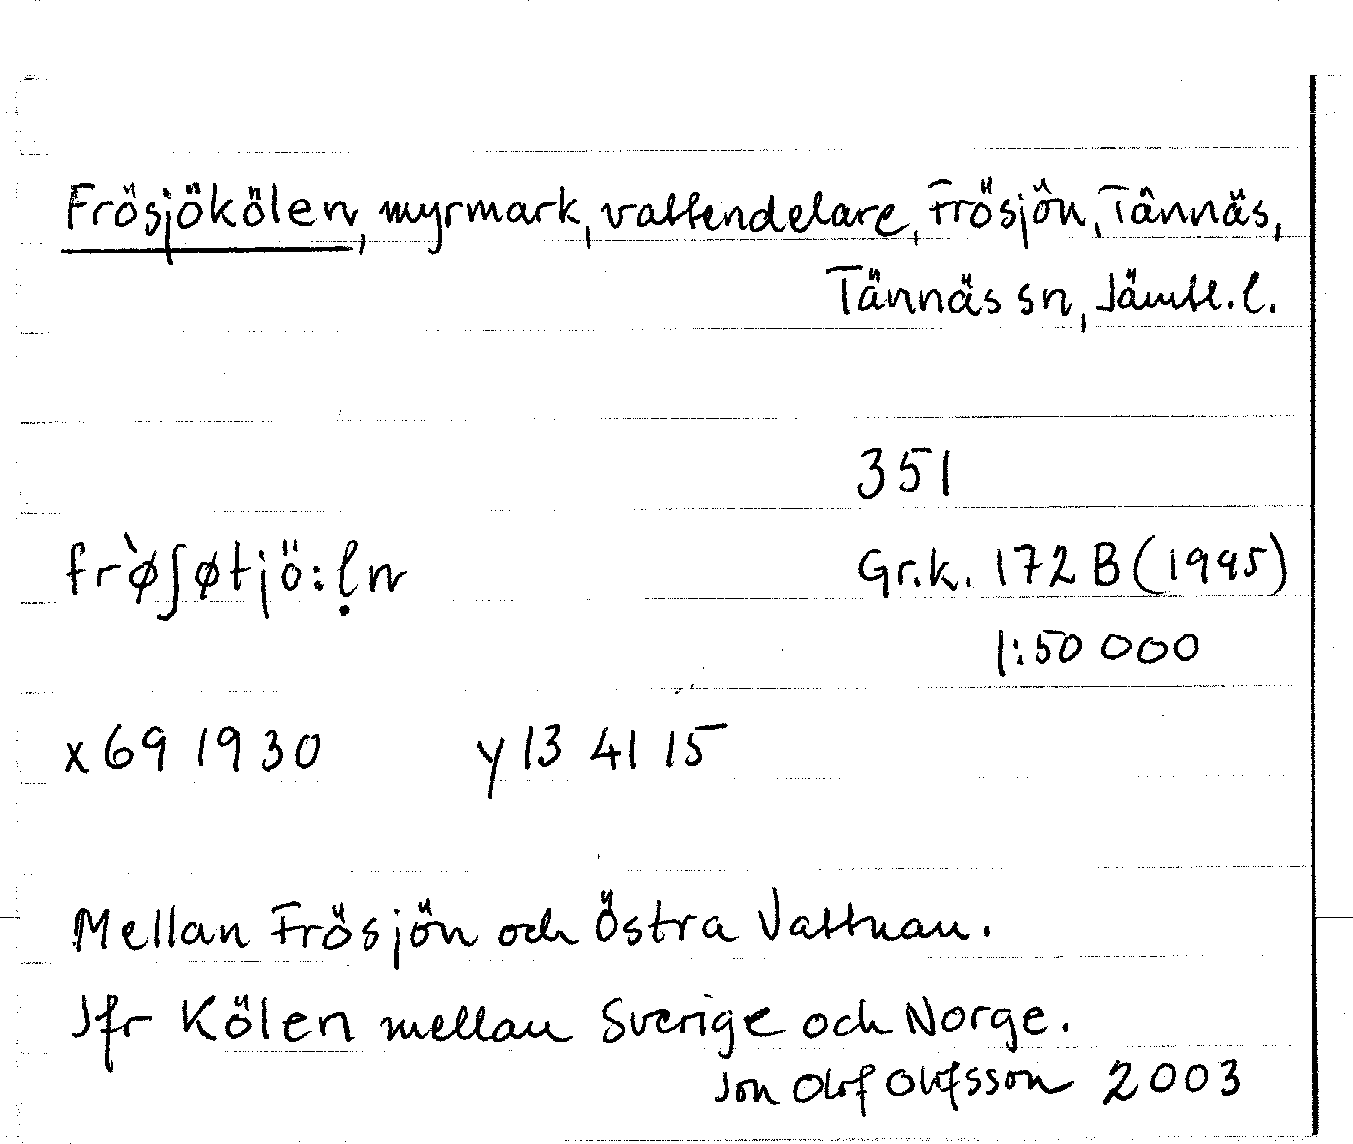 Frösjökölen, myrmark, vattendelare, Frösjön, Tännäs,
Tännäs sn, Jämtl. l.
351
fr̀øʃøtjö:ḷn Gr.k. 172 B (1995)
1:50 000
x 69 19 30 y 13 41 15
Mellan Frösjön och Östra Vattnan.
Jfr Kölen mellan Sverige och Norge.
Jon Olof Olofsson 2003